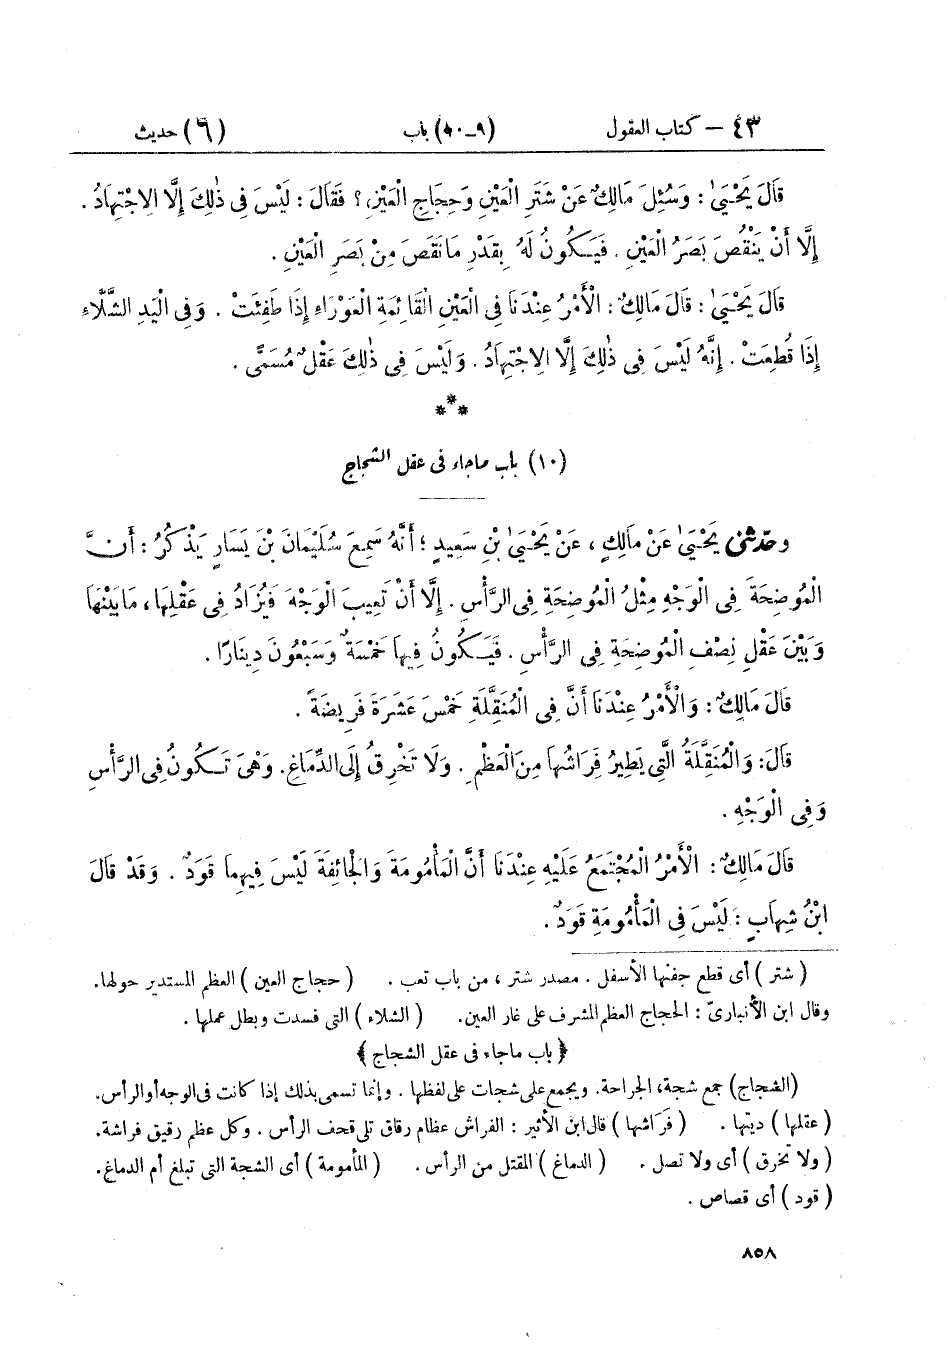 ٤٣ – كتاب العقول (٩–١٠) باب (٦) حديث
قَالَ يَحْيَىٰ : وَسُئِلَ مَالِكٌ عَنْ شَتَرِ الْعَيْنِ وَحِجَاجِ الْعَيْنِ ؟ فَقَالَ : لَيْسَ فِى ذٰلِكَ إِلَّا الِاجْتِهَادُ .
إِلَّا أَنْ يَنْقُصَ بَصَرُ الْعَيْنِ . فَيَكُونُ لَهُ بِقَدْرِ مَا نَقَصَ مِنْ بَصَرِ الْعَيْنِ .
قَالَ يَحْيَىٰ : قَالَ مَالِكٌ : الْأَمْرُ عِنْدَنَا فِى الْعَيْنِ الْقَائِمَةِ الْعَوْرَاءِ إِذَا طَفِئَتْ . وَفِى الْيَدِ الشَّلَّاءِ
إِذَا قُطِعَتْ . إِنَّهُ لَيْسَ فِى ذٰلِكَ إِلَّا الِاجْتِهَادُ . وَلَيْسَ فِى ذٰلِكَ عَقْلٌ مُسَمًّى .
***
(١٠) باب ماجاء فى عقل الشجاج
وحدّثنى يَحْيَىٰ عَنْ مَالِكٍ ، عَنْ يَحْيَىٰ بْنِ سَعِيدٍ ؛ أَنَّهُ سَمِعَ سُلَيْمَانَ بْنَ يَسَارٍ يَذْكُرُ : أَنَّ
الْمُوضِحَةَ فِى الْوَجْهِ مِثْلُ الْمُوضِحَةِ فِى الرَّأْسِ . إِلَّا أَنْ تَعِيبَ الْوَجْهَ فَيُزَادُ فِى عَقْلِهَا ، مَا بَيْنَهَا
وَبَيْنَ عَقْلِ نِصْفِ الْمُوضِحَةِ فِى الرَّأْسِ . فَيَكُونُ فِيهَا خَمْسَةٌ وَسَبْعُونَ دِينَارًا .
قَالَ مَالِكٌ : وَالْأَمْرُ عِنْدَنَا أَنَّ فِى الْمُنَقِّلَةِ خَمْسَ عَشَرَةَ فَرِيضَةً .
قَالَ : وَالْمُنَقِّلَةُ الَّتِى يَطِيرُ فِرَاشُهَا مِنَ الْعَظْمِ . وَلَا تَخْرِقُ إِلَى الدِّمَاغِ . وَهْىَ تَكُونُ فِى الرَّأْسِ
وَفِى الْوَجْهِ .
قَالَ مَالِكٌ : الْأَمْرُ الْمُجْتَمَعُ عَلَيْهِ عِنْدَنَا أَنَّ الْمَأْمُومَةَ وَالْجَائِفَةَ لَيْسَ فِيهِمَا قَوَدٌ . وَقَدْ قَالَ
ابْنُ شِهَابٍ : لَيْسَ فِى الْمَأْمُومَةِ قَوَدٌ .
( شتر ) أى قطع جفنها الأسفل . مصدر شتر ، من باب تعب . ( حجاج العين ) العظم المستدير حولها .
وقال ابن الأنبارىّ : الحجاج العظم المشرف على غار العين . ( الشلاء ) التى فسدت وبطل عملها .
﴿ باب ماجاء فى عقل الشجاج ﴾
(الشجاج) جمع شجة، الجراحة. ويجمع على شجات على لفظها . وإنما تسمى بذلك إذا كانت فى الوجه أو الرأس.
( عقلها ) ديتها . ( فَرَاشها ) قال ابن الأثير : الفراش عظام رقاق تلى قحف الرأس . وكل عظم رقيق فراشة.
( ولا تخرق ) أى ولا تصل . ( الدماغ ) المقتل من الرأس . ( المأمومة ) أى الشجة التى تبلغ أم الدماغ.
( قود ) أى قصاص .
٨٥٨